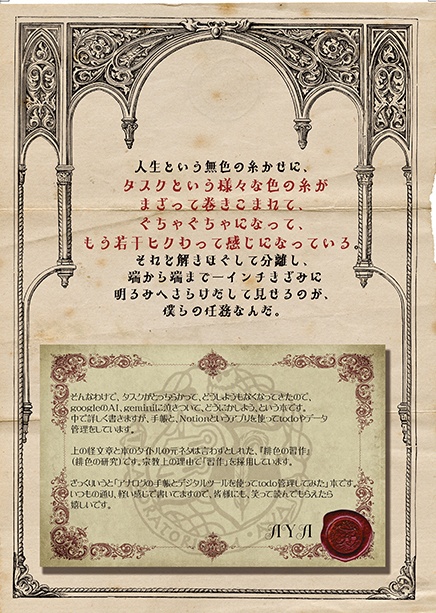 人生という無色の糸かせに、
タスクという様々な色の糸が
まざって巻きこまれて、
ぐちゃぐちゃになって、
もう若干ヒクわって感じになっている。
それを解きほぐして分離し、
端から端まで一インチきざみに
明るみへさらけだして見せるのが、
僕らの任務なんだ。
そんなわけで、タスクがとっちらかって、どうしようもなくなってきたので、
googleのAI、geminiに泣きついて、どうにかしよう、という本です。
中で詳しく書きますが、手帳と、Notionというアプリを使ってtodoやデータ
管理をしています。
上の怪文章と本のタイトルの元ネタは言わずとしれた、『緋色の習作』
（緋色の研究）です。宗教上の理由で「習作」を採用しています。
ざっくりいうと「アナログの手帳とデジタルツールを使ってtodo管理してみた」本です。
いつもの通り、軽い感じで書いてますので、皆様にも、笑って読んでもらえたら
嬉しいです。
AYA